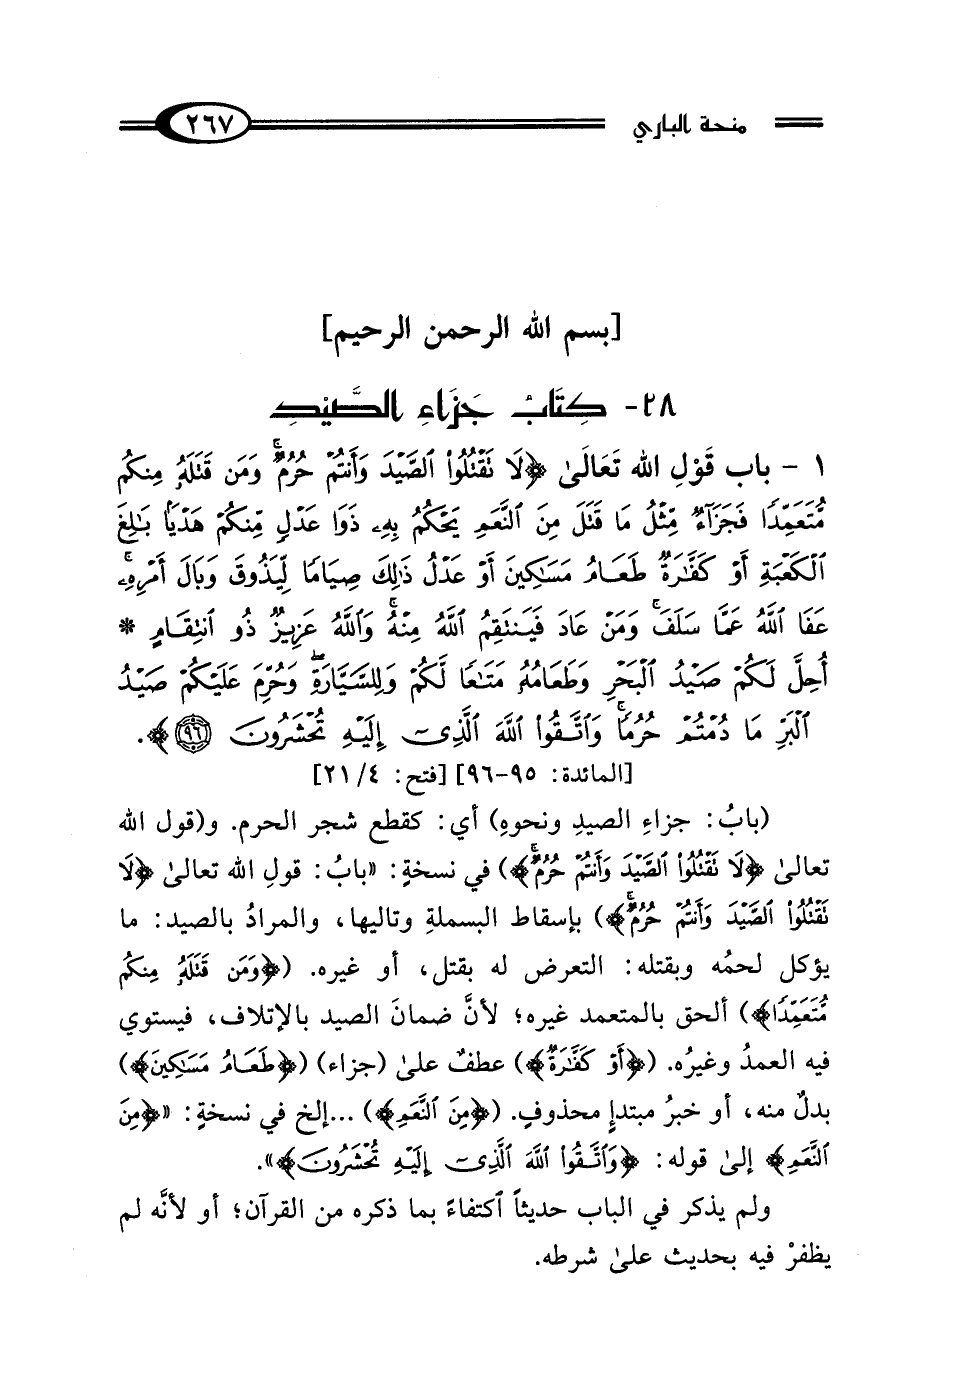 منحة الباري ٢٦٧
[بسم الله الرحمن الرحيم]
٢٨- كِتَابُ جَزَاءِ الصَّيْدِ
١ - باب قَوْلِ الله تَعَالَىٰ ﴿لَا تَقْتُلُوا۟ ٱلصَّيْدَ وَأَنتُمْ حُرُمٌ ۚ وَمَن قَتَلَهُۥ مِنكُم
مُّتَعَمِّدًا فَجَزَآءٌ مِّثْلُ مَا قَتَلَ مِنَ ٱلنَّعَمِ يَحْكُمُ بِهِۦ ذَوَا عَدْلٍ مِّنكُمْ هَدْيًۢا بَـٰلِغَ
ٱلْكَعْبَةِ أَوْ كَفَّـٰرَةٌ طَعَامُ مَسَـٰكِينَ أَوْ عَدْلُ ذَٰلِكَ صِيَامًا لِّيَذُوقَ وَبَالَ أَمْرِهِۦ ۗ
عَفَا ٱللَّهُ عَمَّا سَلَفَ ۚ وَمَنْ عَادَ فَيَنتَقِمُ ٱللَّهُ مِنْهُ ۗ وَٱللَّهُ عَزِيزٌ ذُو ٱنتِقَامٍ *
أُحِلَّ لَكُمْ صَيْدُ ٱلْبَحْرِ وَطَعَامُهُۥ مَتَـٰعًا لَّكُمْ وَلِلسَّيَّارَةِ ۖ وَحُرِّمَ عَلَيْكُمْ صَيْدُ
ٱلْبَرِّ مَا دُمْتُمْ حُرُمًا ۗ وَٱتَّقُوا۟ ٱللَّهَ ٱلَّذِىٓ إِلَيْهِ تُحْشَرُونَ ٩٦﴾.
[المائدة: ٩٥-٩٦] [فتح: ٤/ ٢١]
(بابُ: جزاءِ الصيدِ ونحوِهِ) أي: كقطع شجر الحرم. و(قول الله
تعالىٰ ﴿لَا تَقْتُلُوا۟ ٱلصَّيْدَ وَأَنتُمْ حُرُمٌ ۚ﴾) في نسخةٍ: «بابُ: قولِ الله تعالىٰ ﴿لَا
تَقْتُلُوا۟ ٱلصَّيْدَ وَأَنتُمْ حُرُمٌ ۚ﴾) بإسقاط البسملةِ وتاليها، والمرادُ بالصيد: ما
يؤكل لحمُه وبقتله: التعرض له بقتل، أو غيره. (﴿وَمَن قَتَلَهُۥ مِنكُم
مُّتَعَمِّدًا﴾) ألحق بالمتعمد غيره؛ لأنَّ ضمانَ الصيد بالإتلاف، فيستوي
فيه العمدُ وغيرُه. (﴿أَوْ كَفَّـٰرَةٌ﴾) عطفٌ علىٰ (جزاء) (﴿طَعَامُ مَسَـٰكِينَ﴾)
بدلٌ منه، أو خبرُ مبتدإٍ محذوفٍ. (﴿مِنَ ٱلنَّعَمِ﴾) ...إلخ في نسخةٍ: «﴿مِنَ
ٱلنَّعَمِ﴾ إلىٰ قوله: ﴿وَٱتَّقُوا۟ ٱللَّهَ ٱلَّذِىٓ إِلَيْهِ تُحْشَرُونَ﴾».
ولم يذكر في الباب حديثًا ٱكتفاءً بما ذكره من القرآن؛ أو لأنَّه لم
يظفرْ فيه بحديث علىٰ شرطه.